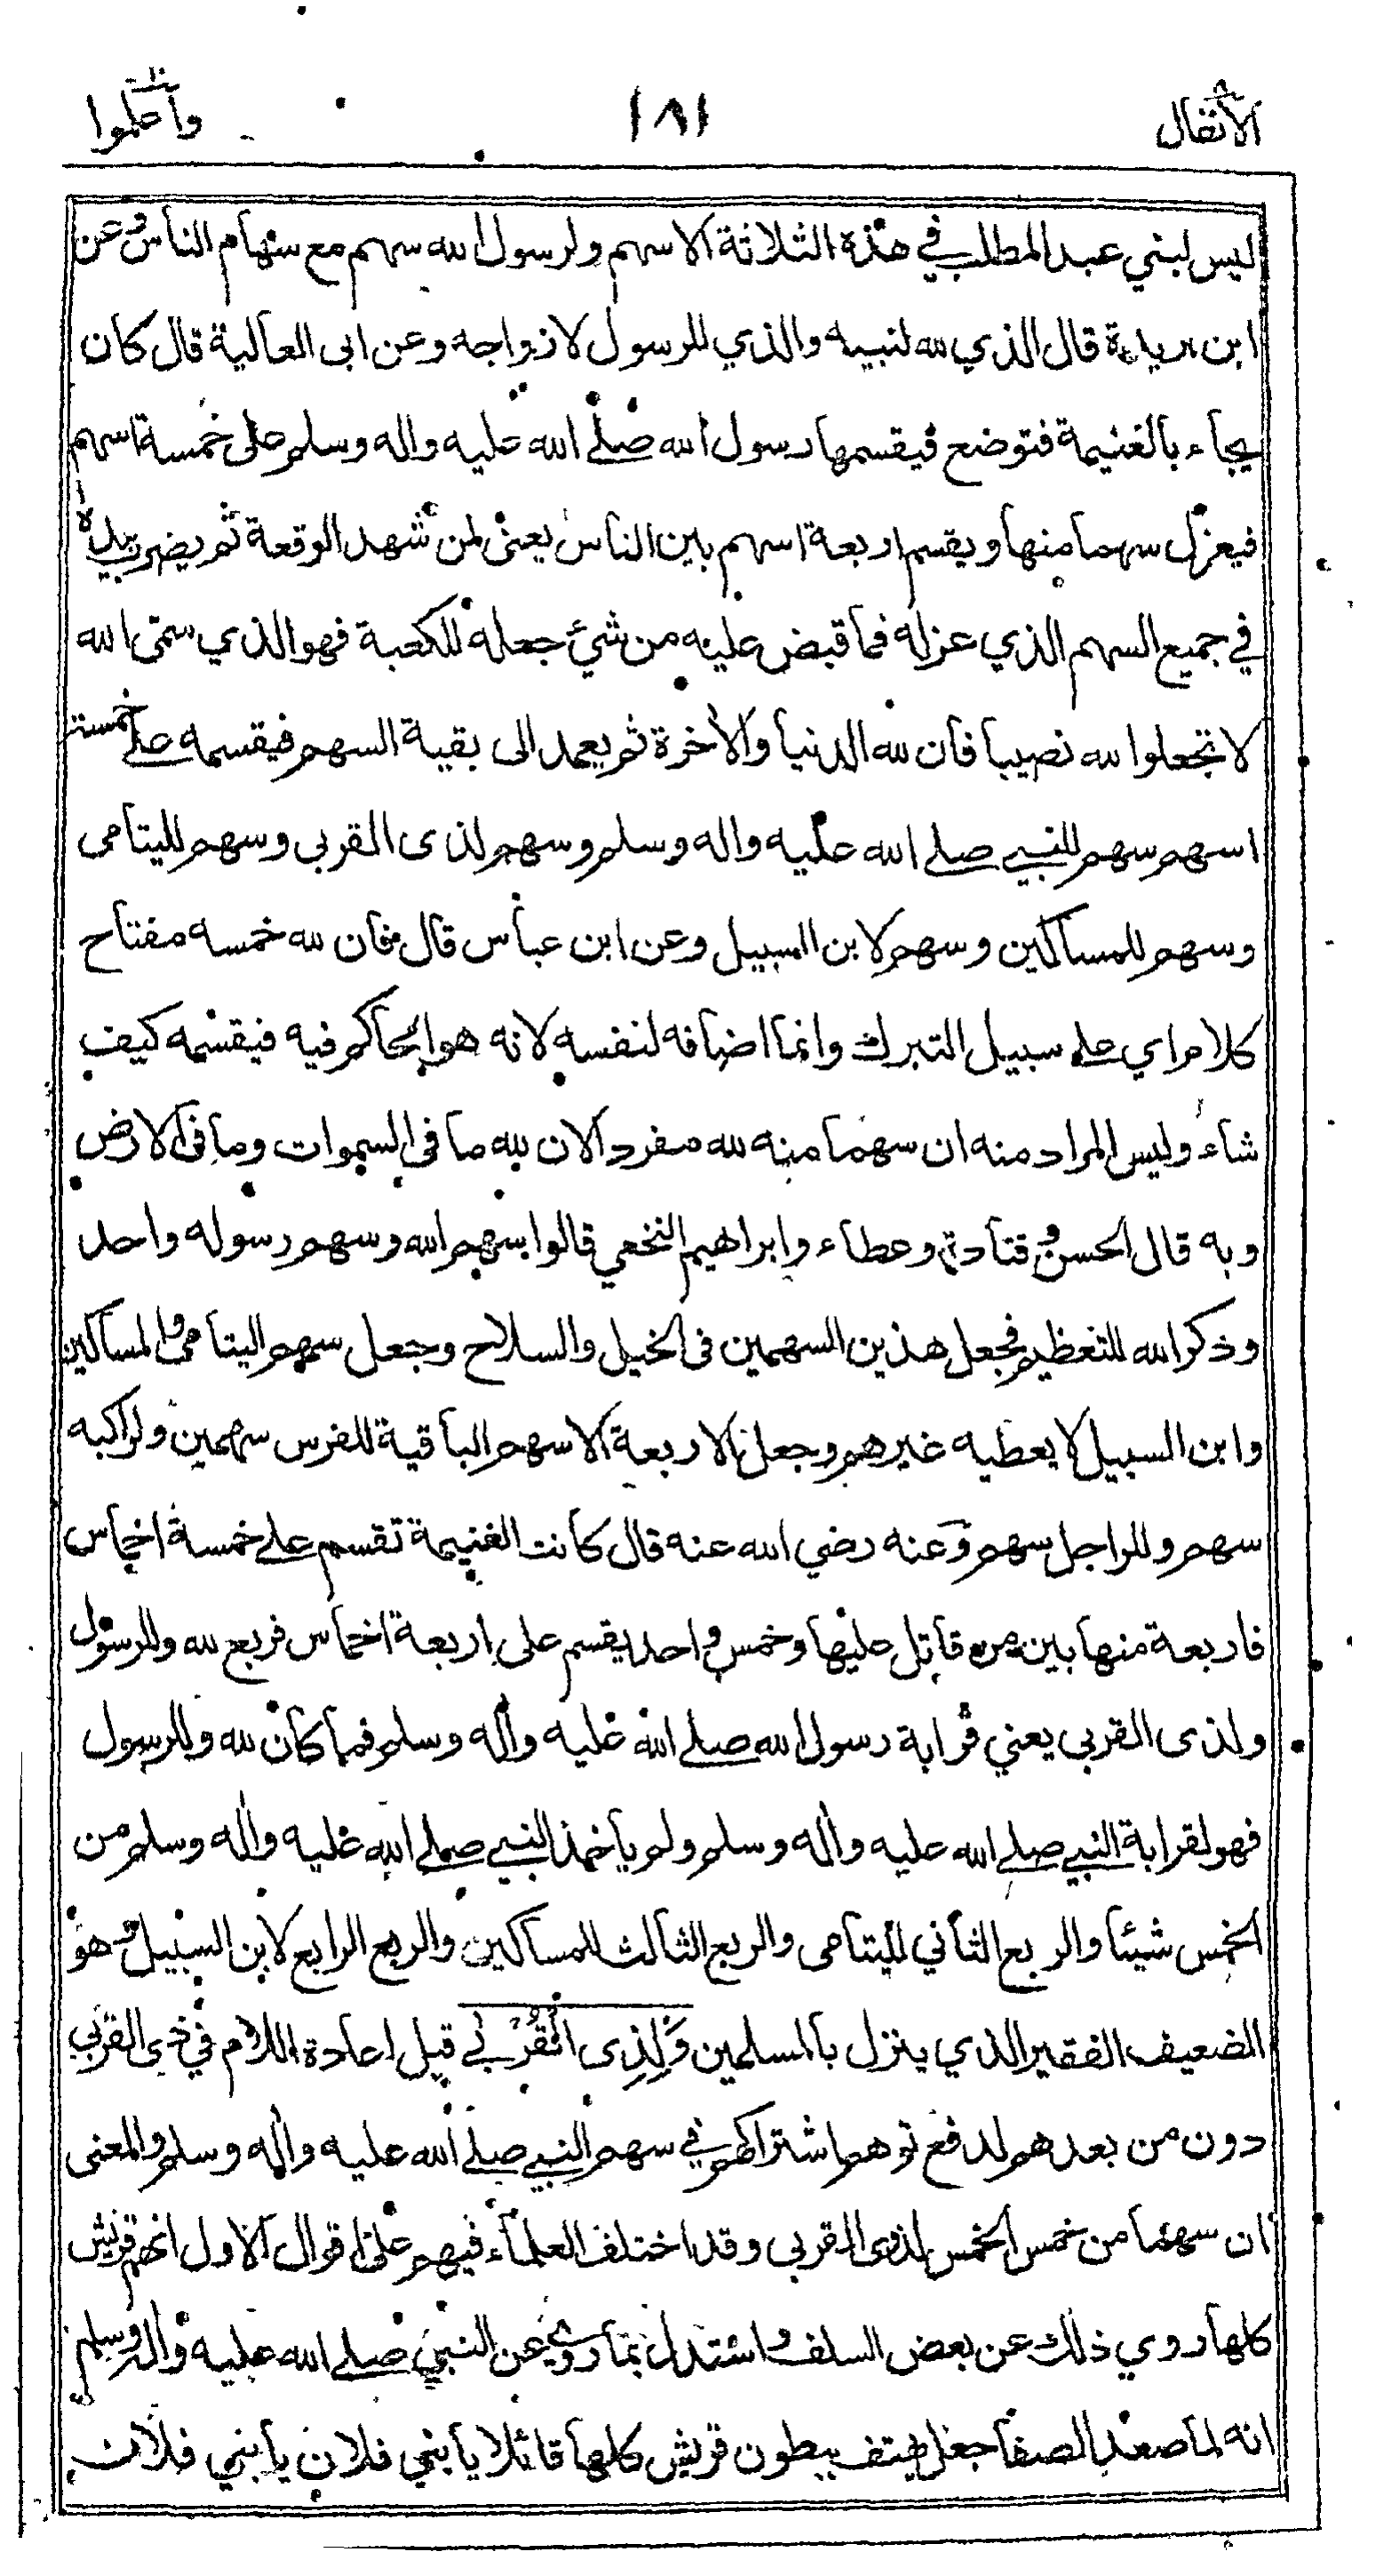 الأنفال ٨
١٨١
واعلموا ١٠
ليس لبني عبد المطلب في هذه الثلاثة الاسهم ولرسول الله سهم مع سهام الناس وعن
ابن بريدة قال الذي لله لنبيه والذي للرسول لازواجه وعن ابى العالية قال كان
يجاء بالغنيمة فتوضع فيقسمها رسول الله صلى الله عليه واله وسلم على خمسة اسهم
فيعزل سهما منها ويقسم اربعة اسهم بين الناس يعنى لمن شهد الوقعة ثم يضرب بيده
في جميع السهم الذي عزله فما قبض عليه من شيء جعله للكعبة فهو الذي سمى الله
لا تجعلوا لله نصيبا فان لله الدنيا والأخرة ثم يعمد الى بقية السهم فيقسمه على خمسة
اسهم سهم للنبي صلى الله عليه واله وسلم وسهم لذى القربى وسهم لليتامى
وسهم للمساكين وسهم لابن السبيل وعن ابن عباس قال فان لله خمسه مفتاح
كلام اي على سبيل التبرك وانما اضافه لنفسه لانه هو الحاكم فيه فيقسمه كيف
شاء وليس المراد منه ان سهما منه لله مفرد الان لله ما في السموات وما فى الارض
وبه قال الحسن وقتادة وعطاء وابراهيم النخعي قالوا سهم الله وسهم رسوله واحد
وذكر الله للتعظيم فجعل هذين السهمين فى الخيل والسلاح وجعل سهم اليتامى والمساكين
وابن السبيل لا يعطيه غيرهم وجعل الاربعة الاسهم الباقية للفرس سهمين ولراكبه
سهم وللراجل سهم وعنه رضي الله عنه قال كانت الغنيمة تقسم على خمسة اخماس
فاربعة منها بين من قاتل عليها وخمس واحد يقسم على اربعة اخماس فربع لله وللرسول
ولذى القربى يعني قرابة رسول الله صلى الله عليه واله وسلم فما كان لله وللرسول
فهو لقرابة النبي صلى الله عليه واله وسلم ولم يأخذ النبي صلى الله عليه واله وسلم من
الخمس شيئا والربع الثاني لليتامى والربع الثالث للمساكين والربع الرابع لابن السبيل وهو
الضعيف الفقير الذي ينزل بالمسلمين وَلِذِى الْقُرْبٰى قيل اعادة اللام في ذى القربى
دون من بعدهم لدفع توهم اشتراكهم في سهم النبي صلى الله عليه واله وسلم والمعنى
ان سهما من خمس الخمس لذوى القربى وقد اختلف العلماء فيهم على اقوال الاول انهم قريش
كلها روي ذلك عن بعض السلف واستدل بما روي عن النبي صلى الله عليه واله وسلم
انه لما صعد الصفا جعل يهتف ببطون قريش كلها قائلا يا بني فلان يا بني فلان